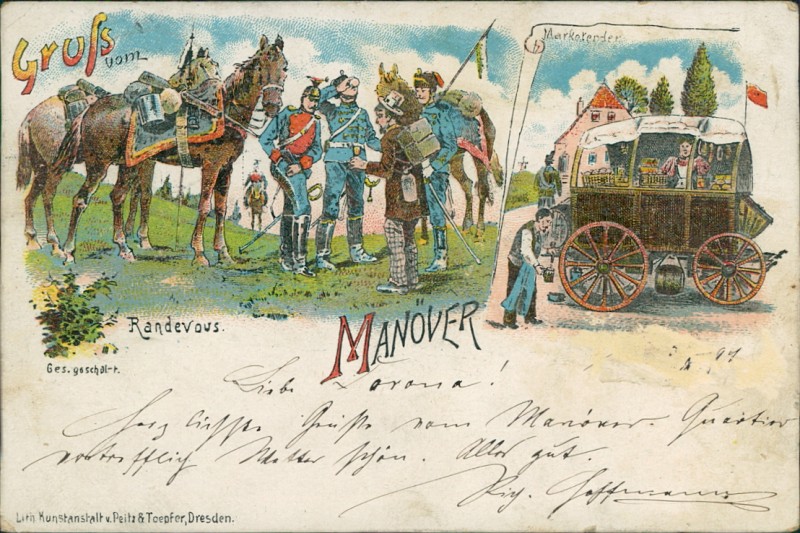 Gruß vom
Marketender
Randevous.
MANÖVER
Ges. geschüt-t.
97
Liebe Corona!
Herzlichste Grüße vom Manöver. Quartier
vortrefflich Wetter schön. Alles gut.
Rich. Hoffmann
Lith Kunstanstalt v. Peitz & Toepfer, Dresden.